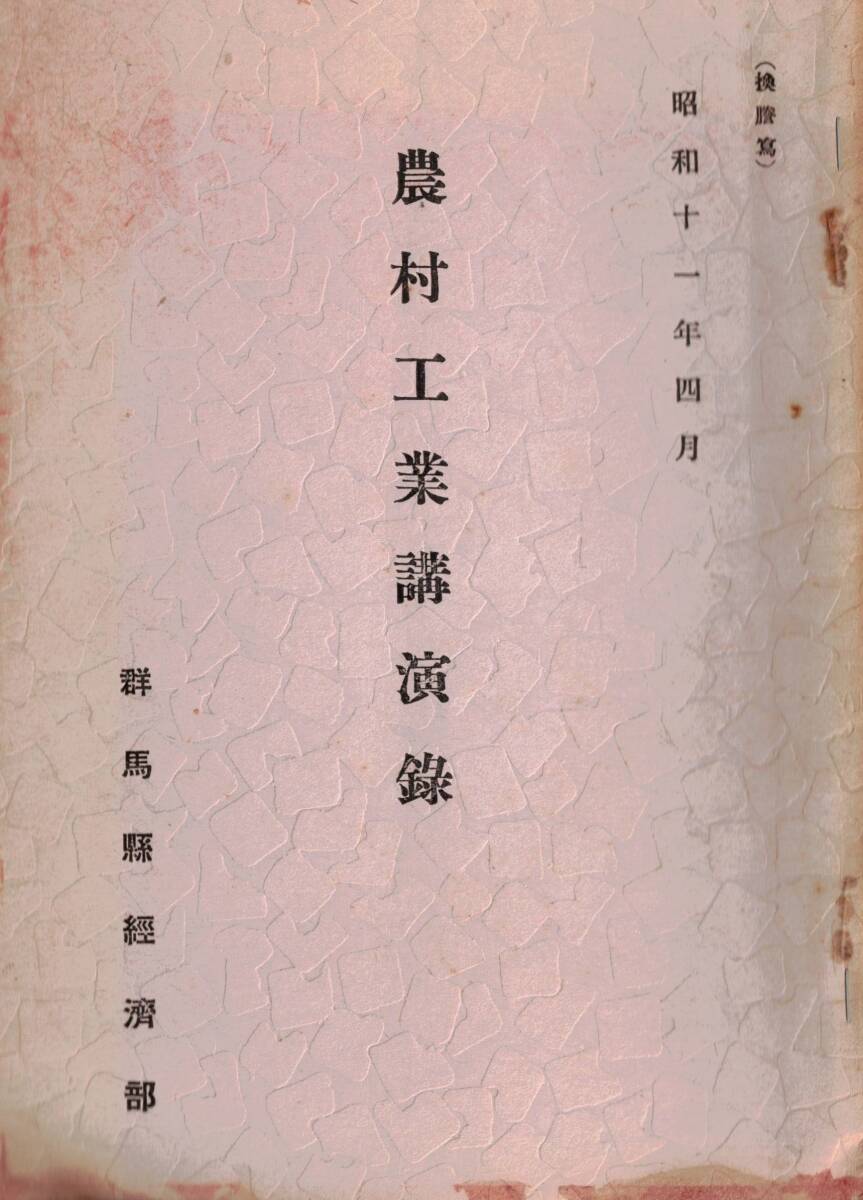 (換謄寫)
昭和十一年四月
農村工業講演錄
群馬縣經濟部